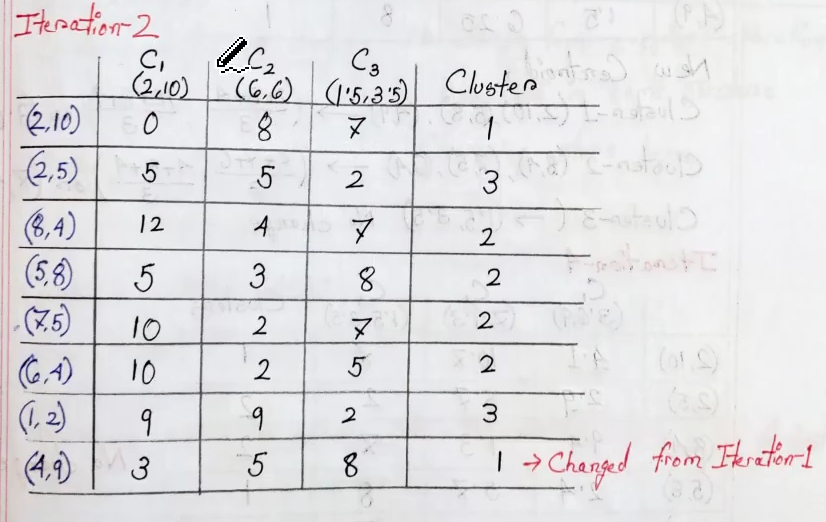 Iteration-2
C₁ C₂ C₃ Cluster
(2,10) (6,6) (1.5,3.5)
(2,10) 0 8 7 1
(2,5) 5 5 2 3
(8,4) 12 4 7 2
(5,8) 5 3 8 2
(7,5) 10 2 7 2
(6,4) 10 2 5 2
(1,2) 9 9 2 3
(4,9) 3 5 8 1 → Changed from Iteration-1